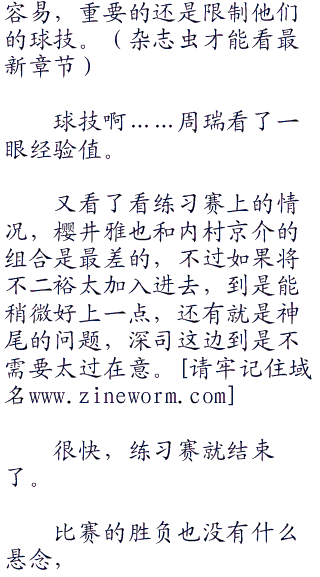 容易，重要的还是限制他们
的球技。（杂志虫才能看最
新章节）
球技啊……周瑞看了一
眼经验值。
又看了看练习赛上的情
况，樱井雅也和内村京介的
组合是最差的，不过如果将
不二裕太加入进去，到是能
稍微好上一点，还有就是神
尾的问题，深司这边到是不
需要太过在意。[请牢记住域
名www.zineworm.com]
很快，练习赛就结束
了。
比赛的胜负也没有什么
悬念，